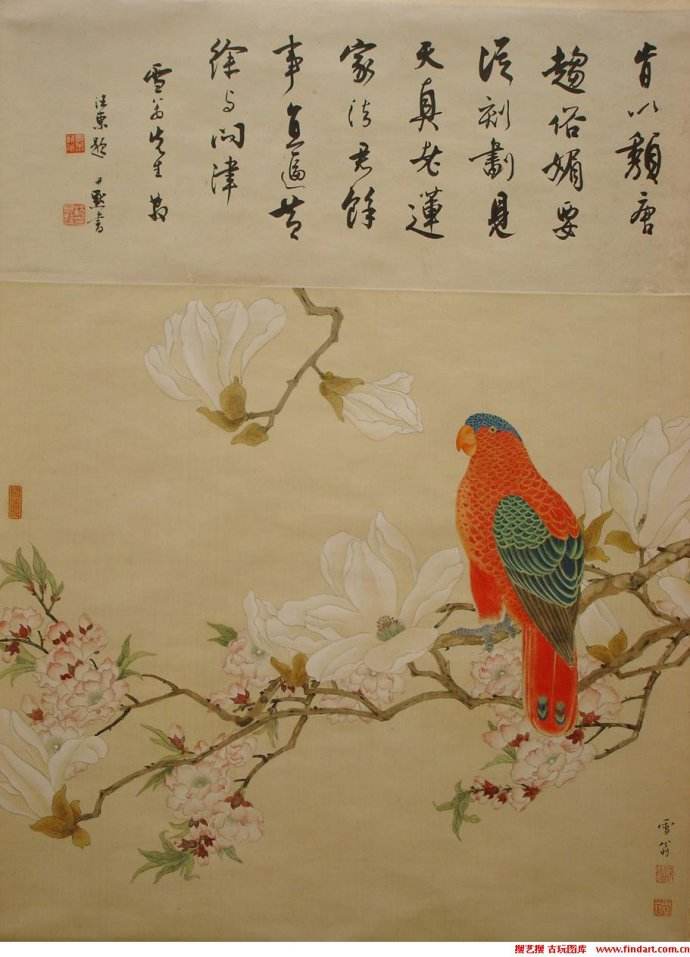 肯以頽唐
趨俗媚要
從刻劃見
天真老蓮
家法君餘
事直逼黄
徐与問津
雪翁先生
汪東題 尹默書
雪翁
搜艺搜 古玩图库 www.findart.com.cn